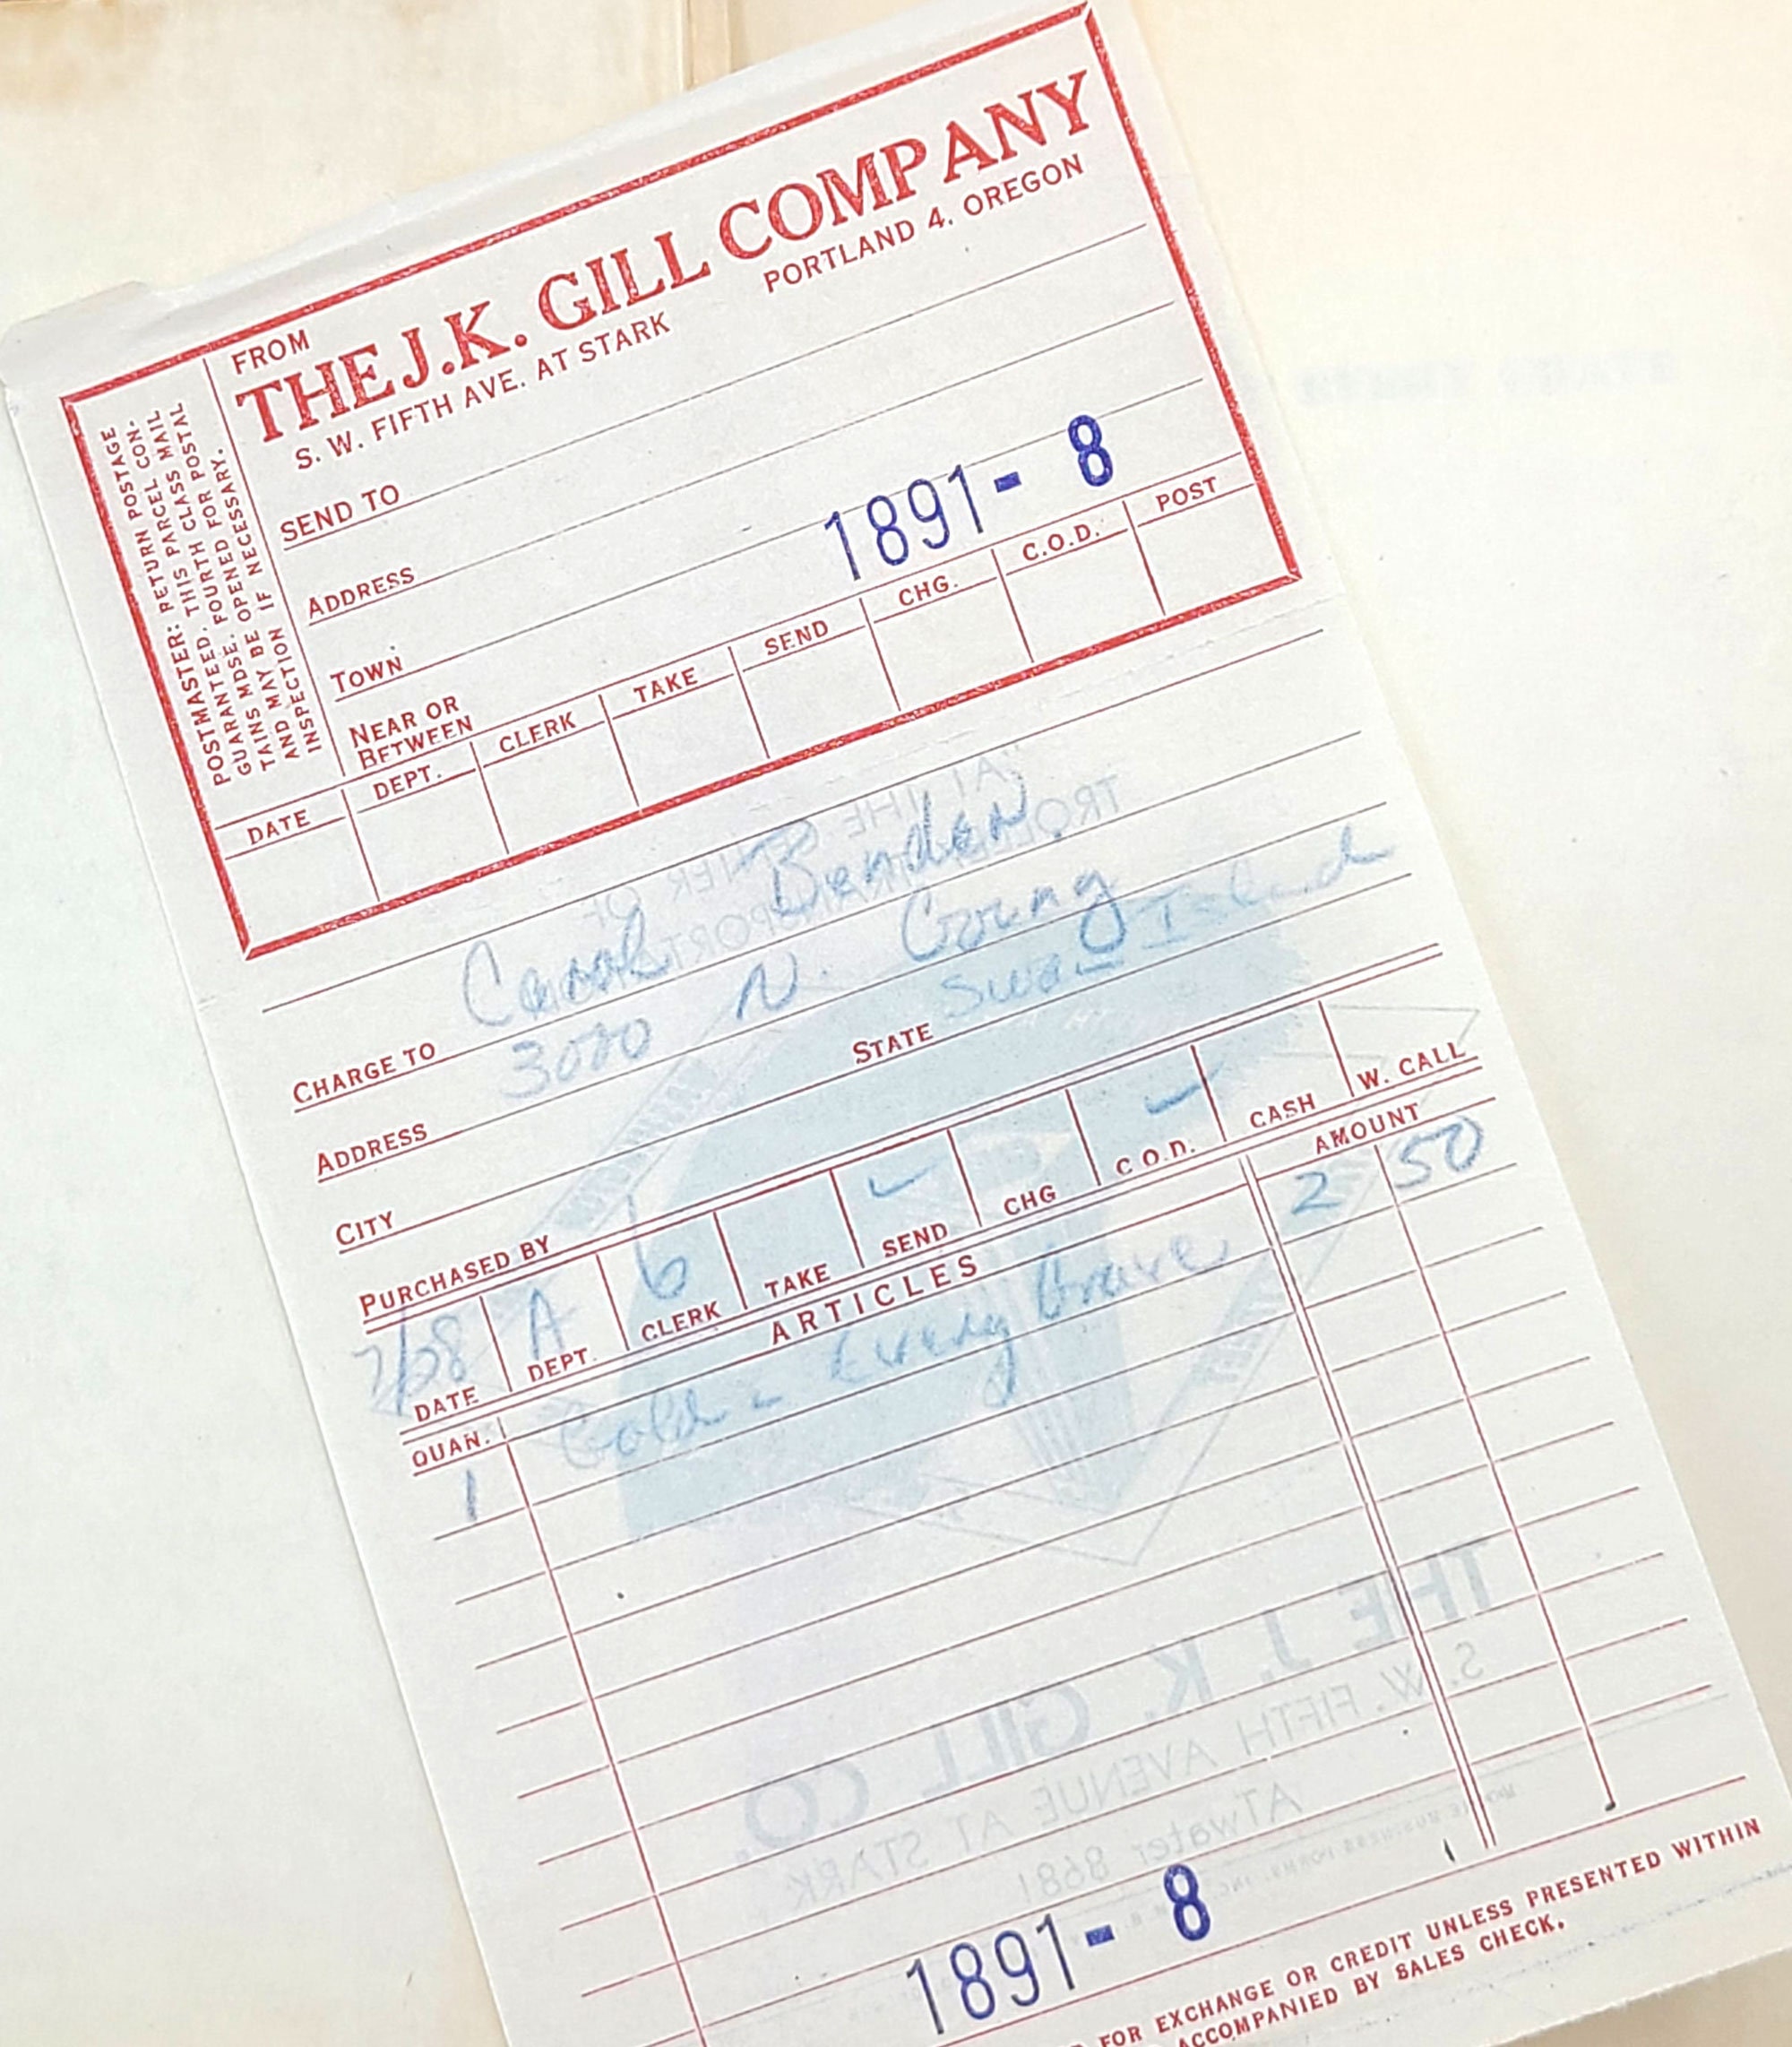 FROM
THE J.K. GILL COMPANY
S. W. FIFTH AVE. AT STARK PORTLAND 4, OREGON
POSTMASTER: RETURN POSTAGE
GUARANTEED. THIS PARCEL CON-
TAINS MDSE. FOURTH CLASS MAIL
AND MAY BE OPENED FOR POSTAL
INSPECTION IF NECESSARY.
SEND TO
ADDRESS
TOWN
1891- 8
NEAR OR
BETWEEN
DATE DEPT. CLERK TAKE SEND CHG. C.O.D. POST
CHARGE TO Carol Bender
ADDRESS 3000 N. Going
CITY STATE Swan Island
PURCHASED BY
7/28 A 6
DATE DEPT. CLERK TAKE SEND CHG C.O.D. CASH W. CALL
QUAN. ARTICLES AMOUNT
1 Gold - Every Grave 2 50
THE J. K. GILL CO.
S. W. FIFTH AVENUE AT STARK
ATwater 8681
1891- 8
FOR EXCHANGE OR CREDIT UNLESS PRESENTED WITHIN
ACCOMPANIED BY SALES CHECK.